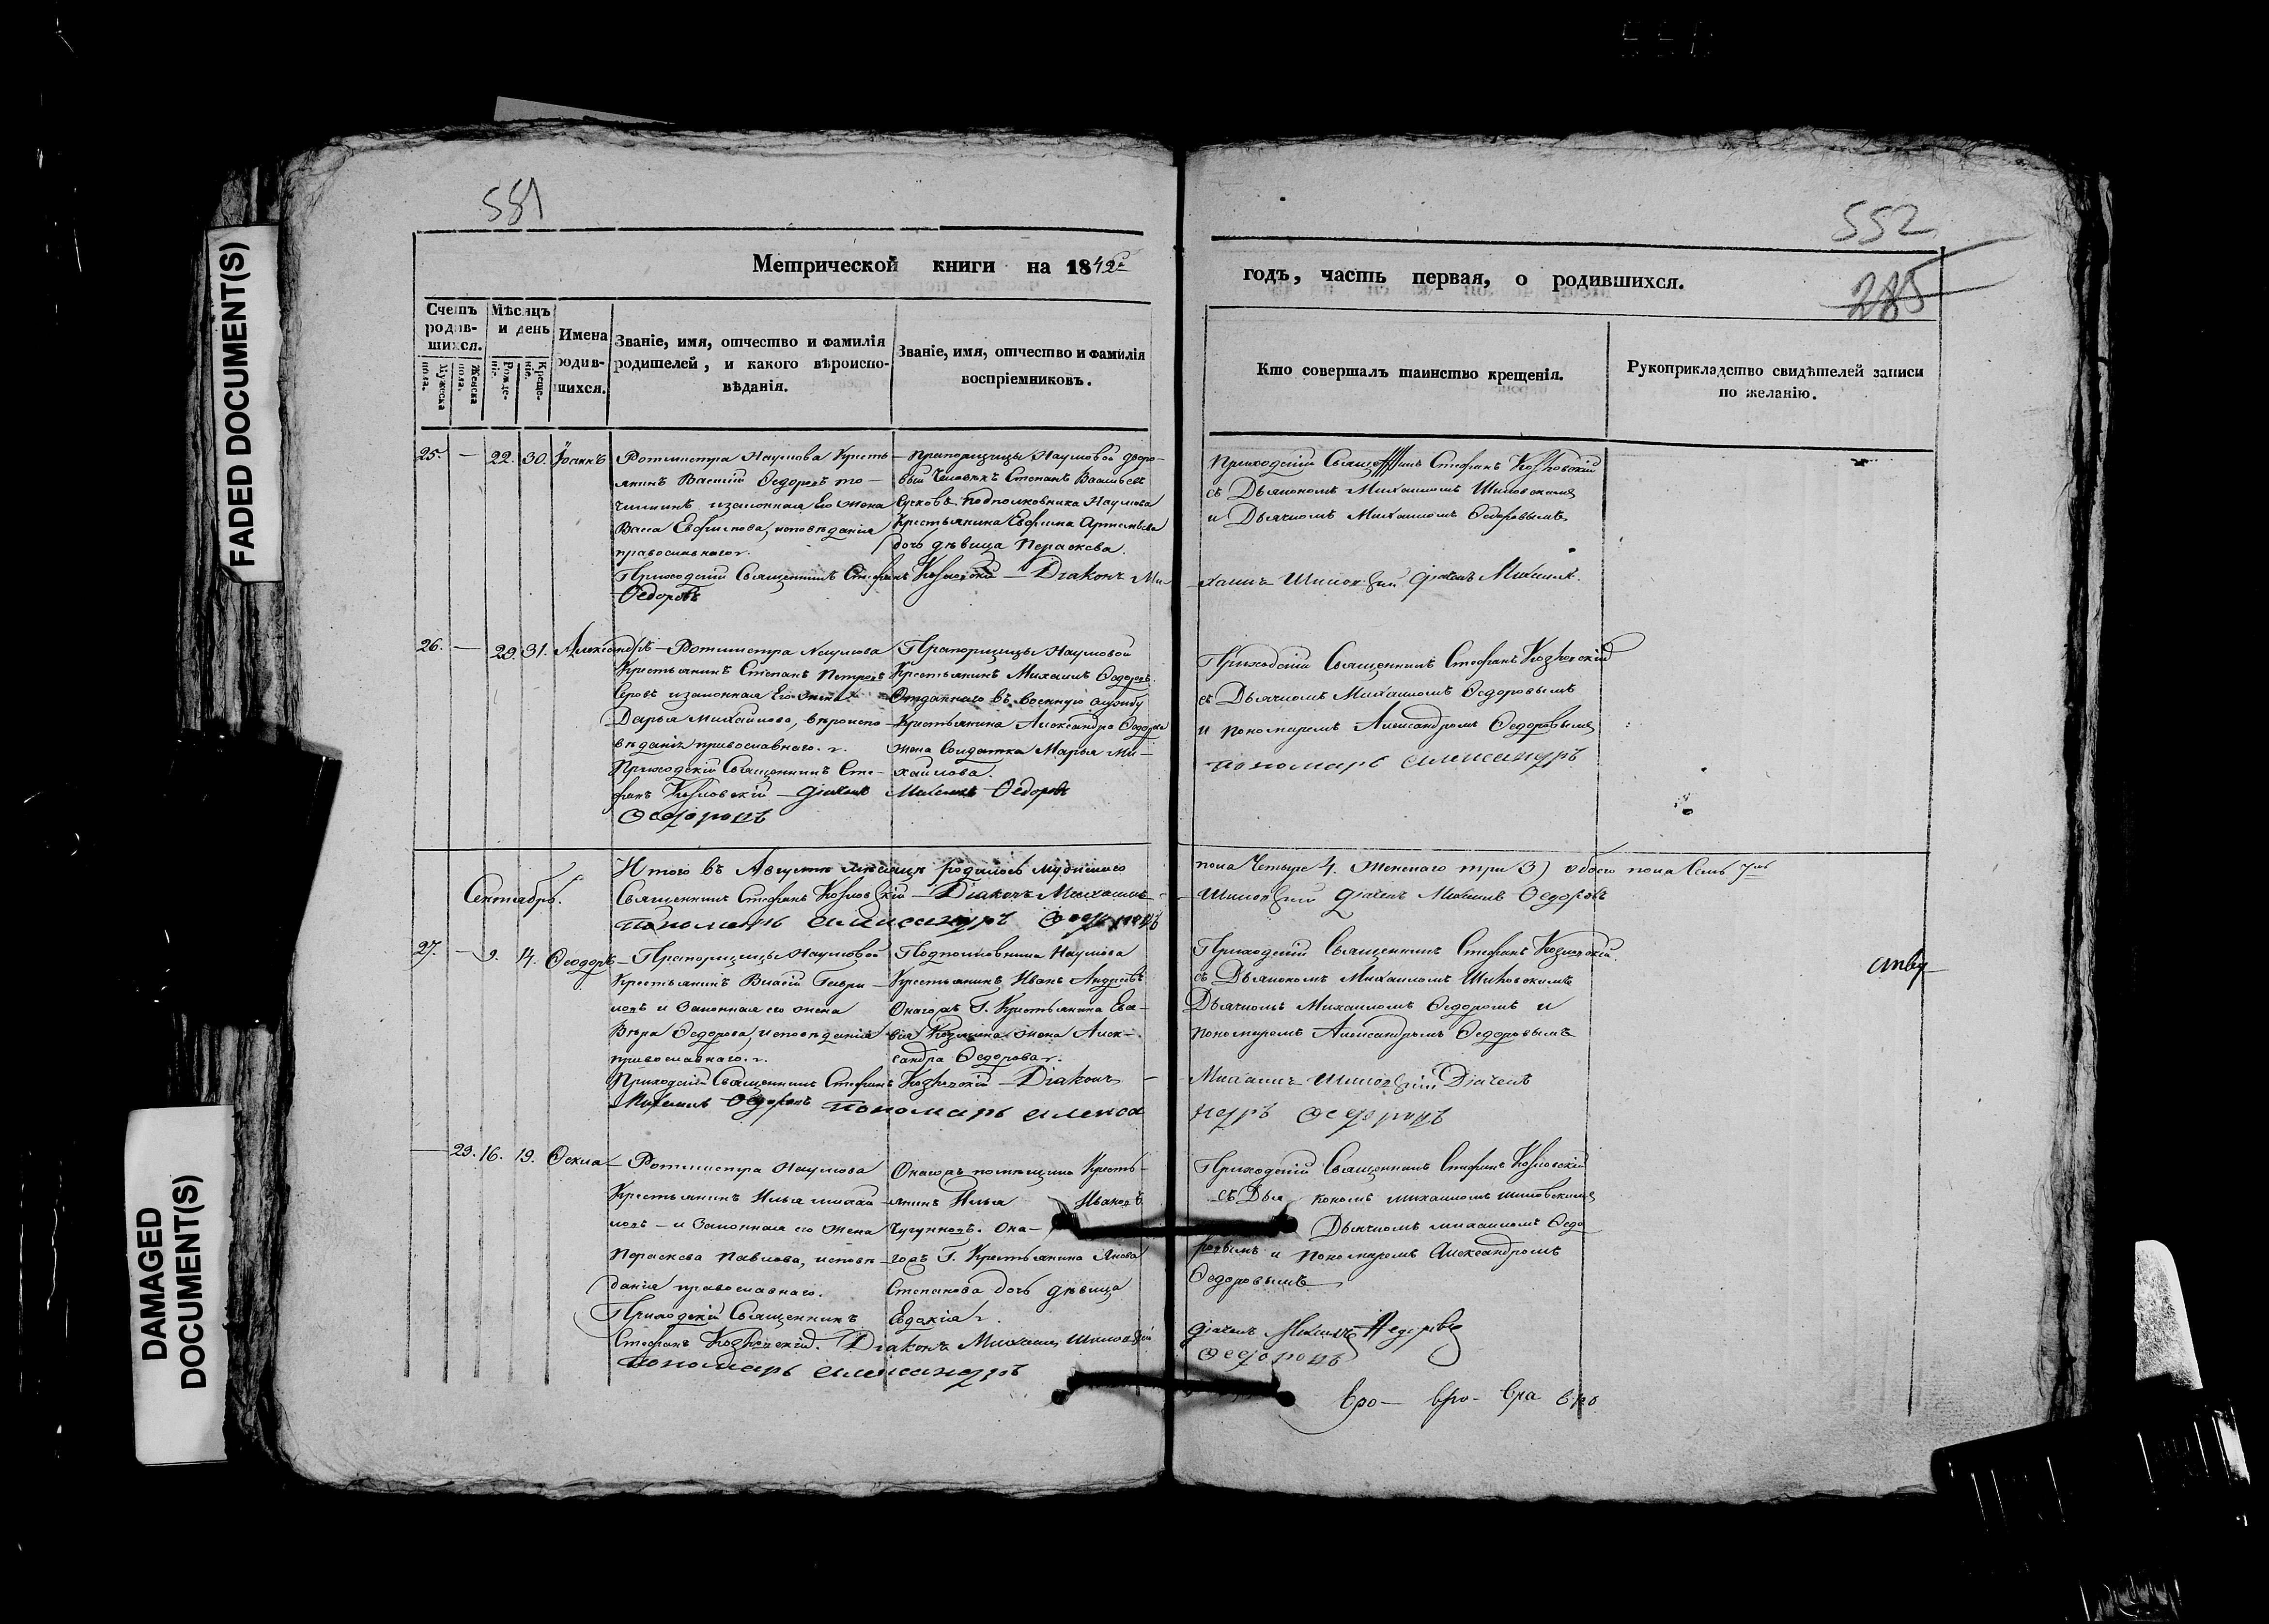 FADED DOCUMENT(S)
DAMAGED DOCUMENT(S)
551
552
285
Метрической книги на 1842
годъ, часть первая, о родившихся.
Счетъ родив-
шихся.
Мужеска пола.
Женска пола.
Мѣсяцъ и день
Рожде-
нія.
Креще-
нія.
Имена
родив-
шихся.
Званіе, имя, отчество и фамилія
родителей, и какого вѣроиспо-
вѣданія.
Званіе, имя, отчество и фамилія
воспріемниковъ.
Кто совершалъ таинство крещенія.
Рукоприкладство свидѣтелей записи
по желанію.
25. — 22. 30. Іоаннъ
Ротмистра Наумова Кресть-
янинъ Василій Ѳедоровъ
и законная его жена
Васса Евфимова, исповѣданія
православнаго.
Прапорщицы Наумовой дворо-
вый человѣкъ Степанъ Васильевъ
Сучковъ. Подполковника Наумова
Крестьянина Евфима Артемьева
дочь дѣвица Параскева.
Приходскій Священникъ Стефанъ Козловскій
съ Дьякономъ Михаиломъ Шиловскимъ
и Дьячкомъ Михаиломъ Ѳедоровымъ
Приходскій Священникъ Стефанъ Козловскій — Діаконъ Ми-
хаилъ Шиловскій Дьячекъ Михаилъ
Ѳедоровъ
26. — 29. 31. Александръ
Ротмистра Наумова
Крестьянинъ Степанъ Петровъ
Серовъ и законная его жена
Дарья Михайлова, вѣроиспо-
вѣданія православнаго.
Прапорщицы Наумовой
Крестьянинъ Михаилъ Ѳедоровъ.
Отданнаго въ военную службу
Крестьянина Александра Ѳедорова
жена Солдатка Марья Ми-
хайлова.
Приходскій Священникъ Стефанъ Козловскій
съ Дьячкомъ Михаиломъ Ѳедоровымъ
и пономаремъ Александромъ Ѳедоровымъ
Приходскій Священникъ Сте-
фанъ Козловскій — Дьячекъ Михаилъ Ѳедоровъ
пономарь Александръ
Ѳедоровъ
Итого въ Августѣ мѣсяцѣ родилось мужескаго
пола четыре 4. Женскаго три 3) обоего пола Семь 7
Священникъ Стефанъ Козловскій — Діаконъ Михаилъ
Шиловскій Дьячекъ Михаилъ Ѳедоровъ
пономарь Александръ Ѳедоровъ
Сентябрь.
27. — 9. 14. Ѳеодоръ
Прапорщицы Наумовой
Крестьянинъ Василій Гаври-
ловъ и Законная его жена
Вѣра Ѳедорова, исповѣданія
православнаго.
Подполковника Наумова
Крестьянинъ Иванъ Андреевъ
Онагожъ Г. Крестьянина
Козмина жена Алек-
сандра Ѳедорова.
Приходскій Священникъ Стефанъ Козловскій
съ Дьякономъ Михаиломъ Шиловскимъ
Дьячкомъ Михаиломъ Ѳедоровымъ и
пономаремъ Александромъ Ѳедоровымъ
Приходскій Священникъ Стефанъ Козловскій — Діаконъ
Михаилъ Шиловскій Дьячекъ
Михаилъ Ѳедоровъ пономарь Алекса
ндръ Ѳедоровъ
— 29. 16. 19. Ѳекла
Ротмистра Наумова
Крестьянинъ Илья Михай-
ловъ — и Законная его жена
Параскева Павлова, исповѣ-
данія православнаго.
Онагожъ помѣщика Кресть-
янинъ Илья Ивановъ
Чугунновъ. Она-
гожъ Г. Крестьянина Якова
Степанова дочь дѣвица
Евдокія.
Приходскій Священникъ Стефанъ Козловскій
съ Дьякономъ Михаиломъ Шиловскимъ
Дьячкомъ Михаиломъ Ѳедо
ровымъ и Пономаремъ Александромъ
Ѳедоровымъ
Приходскій Священникъ
Стефанъ Козловскій. Діаконъ Михаилъ Шиловскій
Дьячекъ Михаилъ Ѳедоровъ
пономарь Александръ
Ѳедоровъ